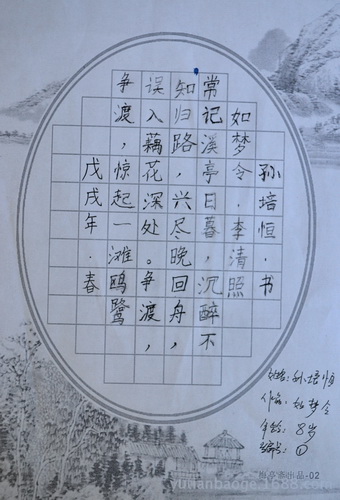 孙培恒.书
如梦令.李清照
常记溪亭日暮,沉醉不
知归路,兴尽晚回舟,
误入藕花深处。争渡,
争渡,惊起一滩鸥鹭
戊戌年.春
姓名:孙培恒
作品:如梦令
年龄:8岁
编号:①
出品-02